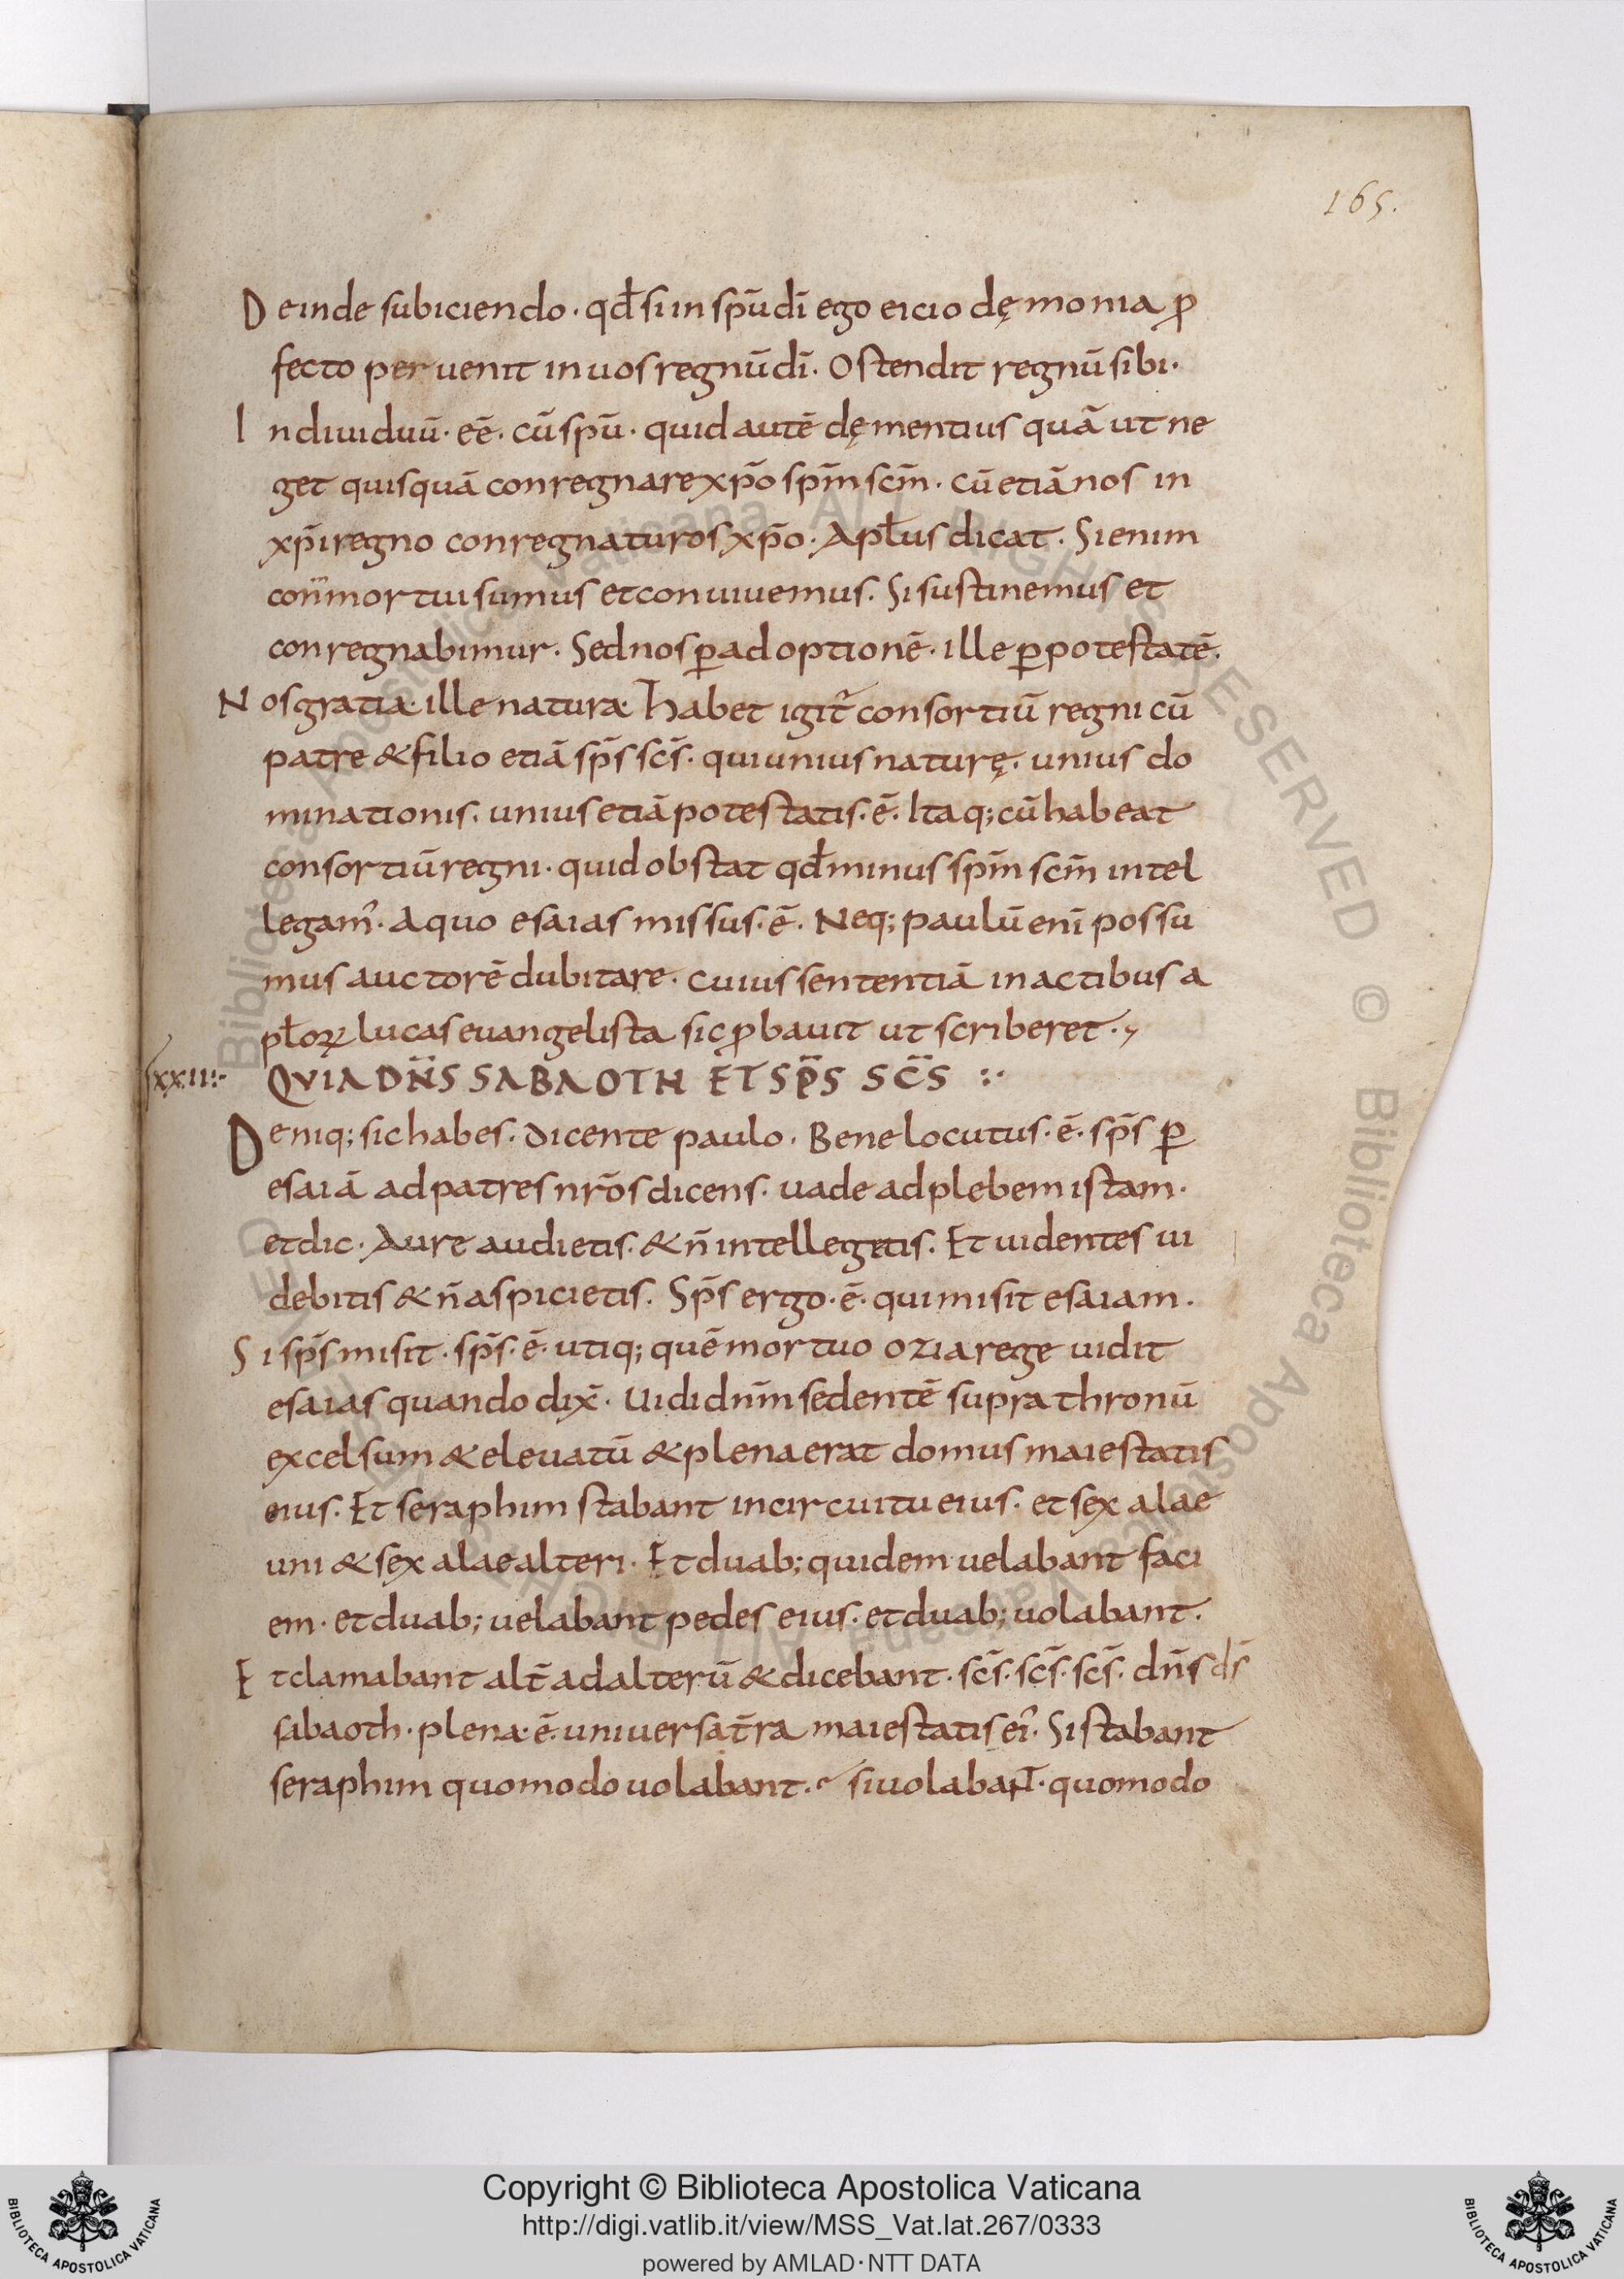 165.
Deinde subiciendo · qđ si in spū dī ego eicio dęmonia ꝓ
fecto peruenit in uos regnū dī. Ostendit regnū sibi.
Indiuiduū · eē · cū spū · quid autē dęmentius quā ut ne
get quisquā conregnare xp̄o sp̄m sc̄m. cū etiā nos in
xp̄i regno conregnaturos xp̄o. Apłus dicat. Si enim
conmortui sumus et conuiuemus. Si sustinemus et
conregnabimur. Sed nos ꝑ adoptionē. ille ꝑ potestatē.
Nos gratia. ille natura. habet igit̄ consortiū regni cū
patre & filio etiā sp̄s sc̄s. qui unius naturę. unius do
minationis. unius etiā potestatis. ē. Itaq; cū habeat
consortiū regni. quid obstat qđ minus sp̄m sc̄m intel
legam᾽. A quo esaias missus. ē. Neq; paulū enī possu
mus auctorē dubitare. cuius sententiā in actibus a
płoꝝ lucas euangelista sic ꝓbauit ut scriberet.,
xxii QVIA DN̄S SABAOTH ET SP̄S SC̄S :·
Deniq; sic habes. dicente paulo. Bene locutus. ē. sp̄s ꝑ
esaiā ad patres nr̄os dicens. uade ad plebem istam.
et dic. Aure audietis. & n̄ intellegetis. Et uidentes ui
debitis & n̄ aspicietis. Sp̄s ergo. ē. qui misit esaiam.
Si sp̄s misit. sp̄s. ē. utiq; quē mortuo ozia rege uidit
esaias quando dix̄. Uidi dn̄m sedentē supra thronū
excelsum & eleuatū & plena erat domus maiestatis
eius. Et seraphim stabant in circuitu eius. et sex alae
uni & sex alae alteri. Et duab; quidem uelabant faci
em. et duab; uelabant pedes eius. et duab; uolabant.
Et clamabant alt̄ ad alterū & dicebant. sc̄s. sc̄s. sc̄s. dn̄s ds̄
sabaoth. plena. ē. uniuersa t̄ra maiestatis ei᾽. Si stabant
seraphim quomodo uolabant. si uolabant. quomodo
Copyright © Biblioteca Apostolica Vaticana
http://digi.vatlib.it/view/MSS_Vat.lat.267/0333
powered by AMLAD · NTT DATA
BIBLIOTECA APOSTOLICA VATICANA
BIBLIOTECA APOSTOLICA VATICANA